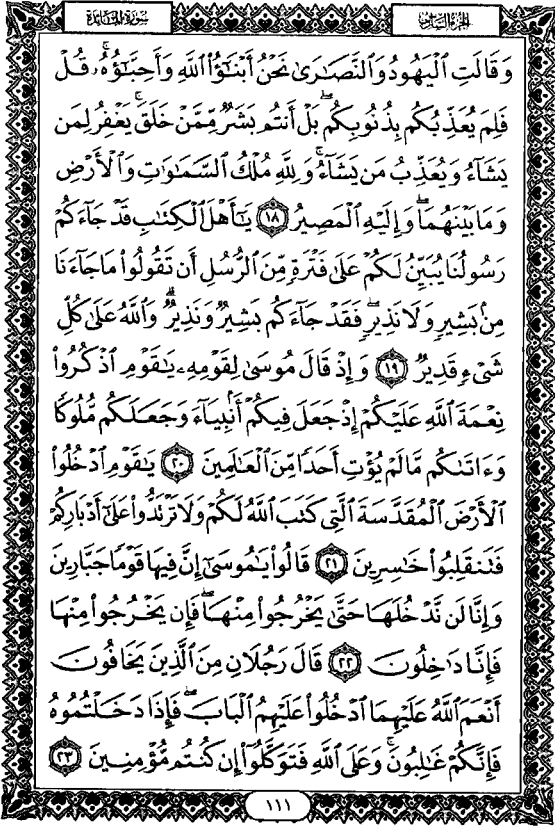 سورة المائدة
الجزء السادس
وَقَالَتِ الْيَهُودُ وَالنَّصَارَىٰ نَحْنُ أَبْنَاؤُا اللَّهِ وَأَحِبَّاؤُهُ ۚ قُلْ
فَلِمَ يُعَذِّبُكُم بِذُنُوبِكُم ۖ بَلْ أَنتُم بَشَرٌ مِّمَّنْ خَلَقَ ۚ يَغْفِرُ لِمَن
يَشَاءُ وَيُعَذِّبُ مَن يَشَاءُ ۚ وَلِلَّهِ مُلْكُ السَّمَاوَاتِ وَالْأَرْضِ
وَمَا بَيْنَهُمَا ۖ وَإِلَيْهِ الْمَصِيرُ ١٨ يَا أَهْلَ الْكِتَابِ قَدْ جَاءَكُمْ
رَسُولُنَا يُبَيِّنُ لَكُمْ عَلَىٰ فَتْرَةٍ مِّنَ الرُّسُلِ أَن تَقُولُوا مَا جَاءَنَا
مِن بَشِيرٍ وَلَا نَذِيرٍ ۖ فَقَدْ جَاءَكُم بَشِيرٌ وَنَذِيرٌ ۗ وَاللَّهُ عَلَىٰ كُلِّ
شَيْءٍ قَدِيرٌ ١٩ وَإِذْ قَالَ مُوسَىٰ لِقَوْمِهِ يَا قَوْمِ اذْكُرُوا
نِعْمَةَ اللَّهِ عَلَيْكُمْ إِذْ جَعَلَ فِيكُمْ أَنبِيَاءَ وَجَعَلَكُم مُّلُوكًا
وَآتَاكُم مَّا لَمْ يُؤْتِ أَحَدًا مِّنَ الْعَالَمِينَ ٢٠ يَا قَوْمِ ادْخُلُوا
الْأَرْضَ الْمُقَدَّسَةَ الَّتِي كَتَبَ اللَّهُ لَكُمْ وَلَا تَرْتَدُّوا عَلَىٰ أَدْبَارِكُمْ
فَتَنقَلِبُوا خَاسِرِينَ ٢١ قَالُوا يَا مُوسَىٰ إِنَّ فِيهَا قَوْمًا جَبَّارِينَ
وَإِنَّا لَن نَّدْخُلَهَا حَتَّىٰ يَخْرُجُوا مِنْهَا ۖ فَإِن يَخْرُجُوا مِنْهَا
فَإِنَّا دَاخِلُونَ ٢٢ قَالَ رَجُلَانِ مِنَ الَّذِينَ يَخَافُونَ
أَنْعَمَ اللَّهُ عَلَيْهِمَا ادْخُلُوا عَلَيْهِمُ الْبَابَ ۖ فَإِذَا دَخَلْتُمُوهُ
فَإِنَّكُمْ غَالِبُونَ ۚ وَعَلَى اللَّهِ فَتَوَكَّلُوا إِن كُنتُم مُّؤْمِنِينَ ٢٣
١١١